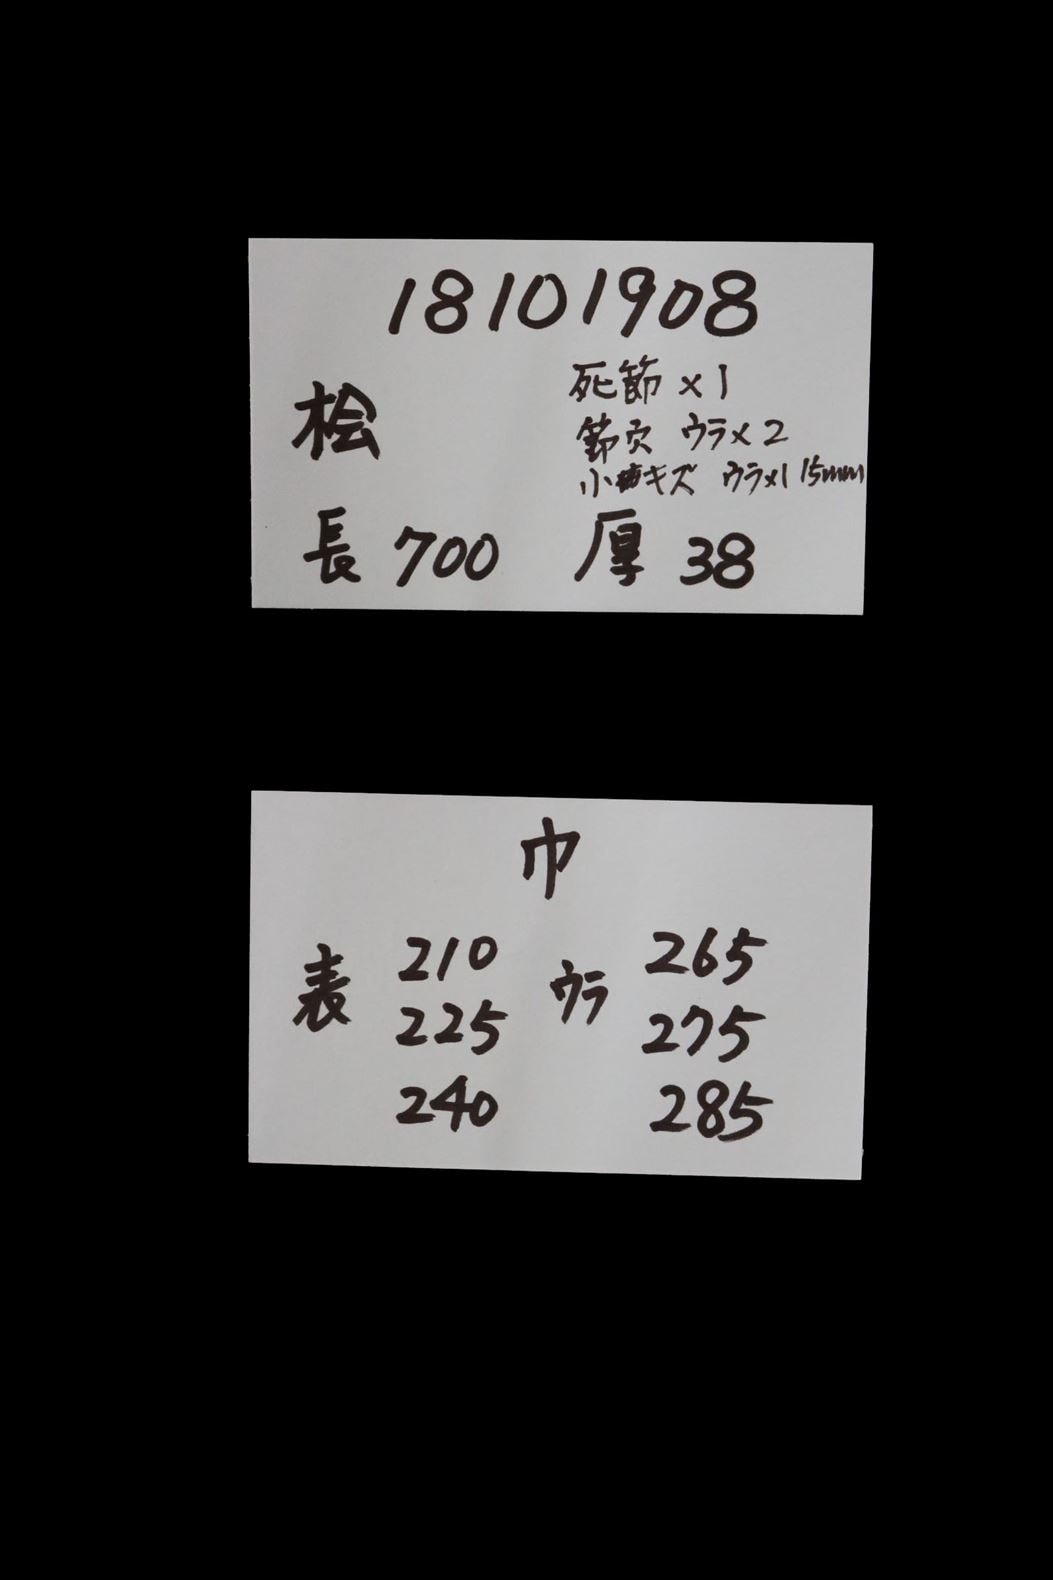 18101908
桧
死節 ×1
節穴 ウラ×2
小キズ ウラ×1 15mm
長 700 厚 38
巾
表 210 ウラ 265
225 275
240 285